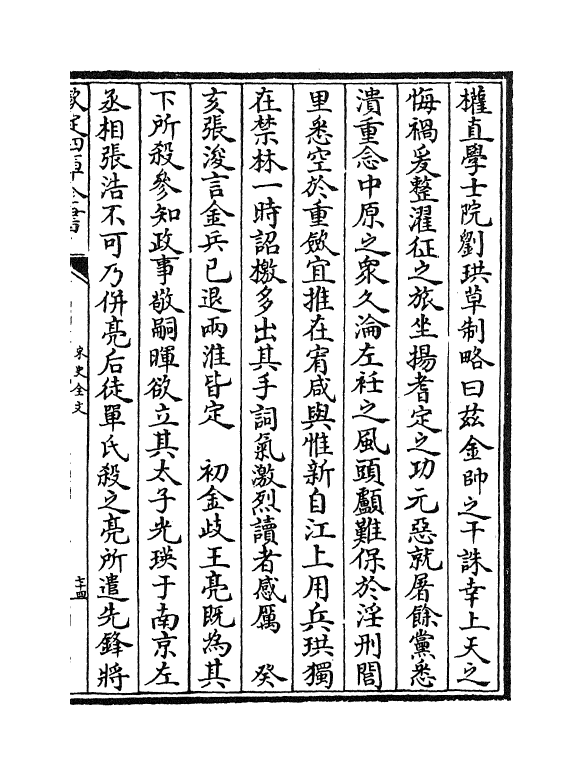 權直學士院劉珙草制略曰兹金帥之干誅幸上天之
悔禍爰整濯征之旅坐揚耆定之功元惡就屠餘黨悉
潰重念中原之衆久淪左衽之風頭顱難保於淫刑閭
里悉空於重斂宜推在宥咸與惟新自江上用兵珙獨
在禁林一時詔檄多出其手詞氣激烈讀者感厲　癸
亥張浚言金兵已退兩淮皆定　初金歧王亮既為其
下所殺參知政事敬嗣暉欲立其太子光瑛于南京左
丞相張浩不可乃併亮后徒單氏殺之亮所遣先鋒將
欽定四庫全書
宋史全文